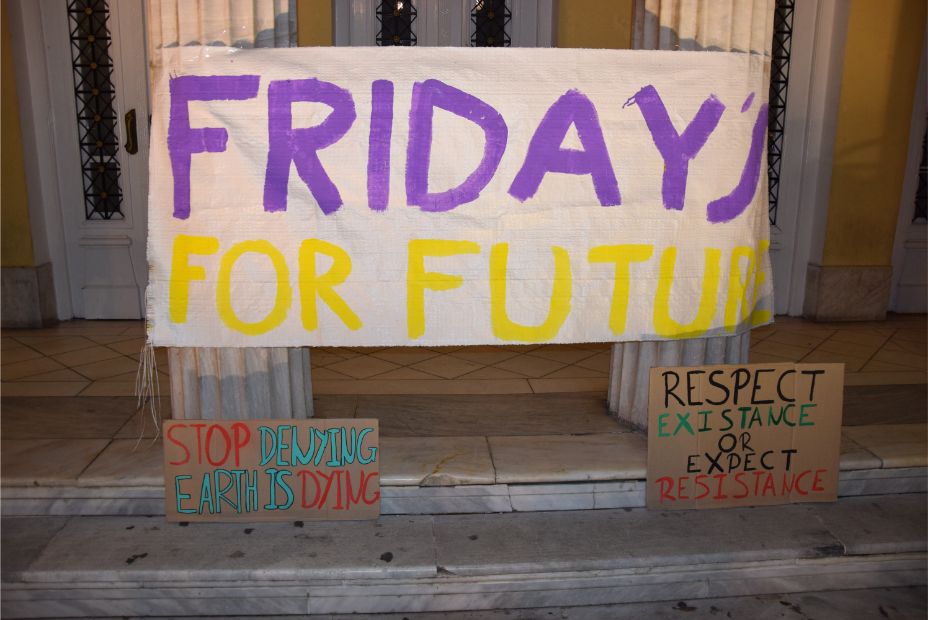 FRIDAY'S
FOR FUTURE
STOP DENYING
EARTH IS DYING
RESPECT
EXISTANCE
OR
EXPECT
RESISTANCE